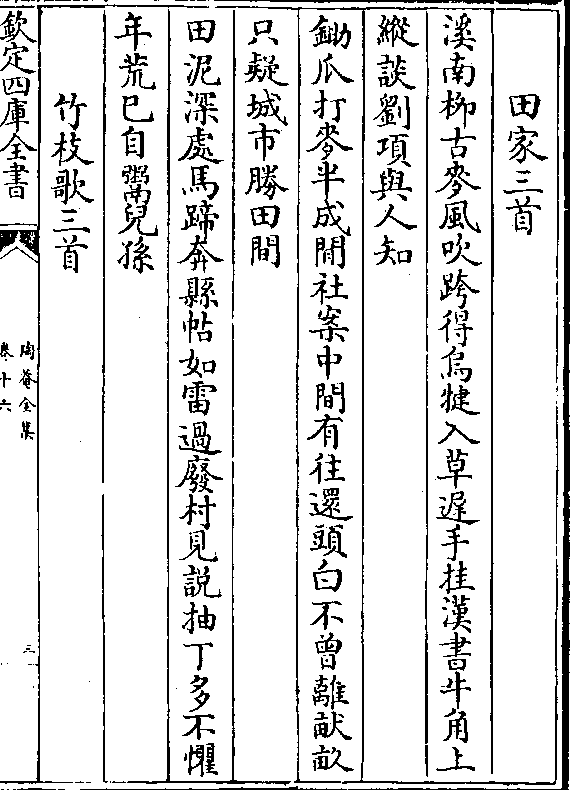 田家三首
溪南柳古麥風吹跨得烏犍入草遲手挂漢書牛角上
縱談劉項與人知
鋤瓜打麥半成閒社案中間有往還頭白不曾離畎畝
只疑城市勝田間
田泥深處馬蹄奔縣帖如雷過廢村見說抽丁多不懼
年荒已自鬻兒孫
竹枝歌三首
欽定四庫全書
陶菴全集
卷十六
三